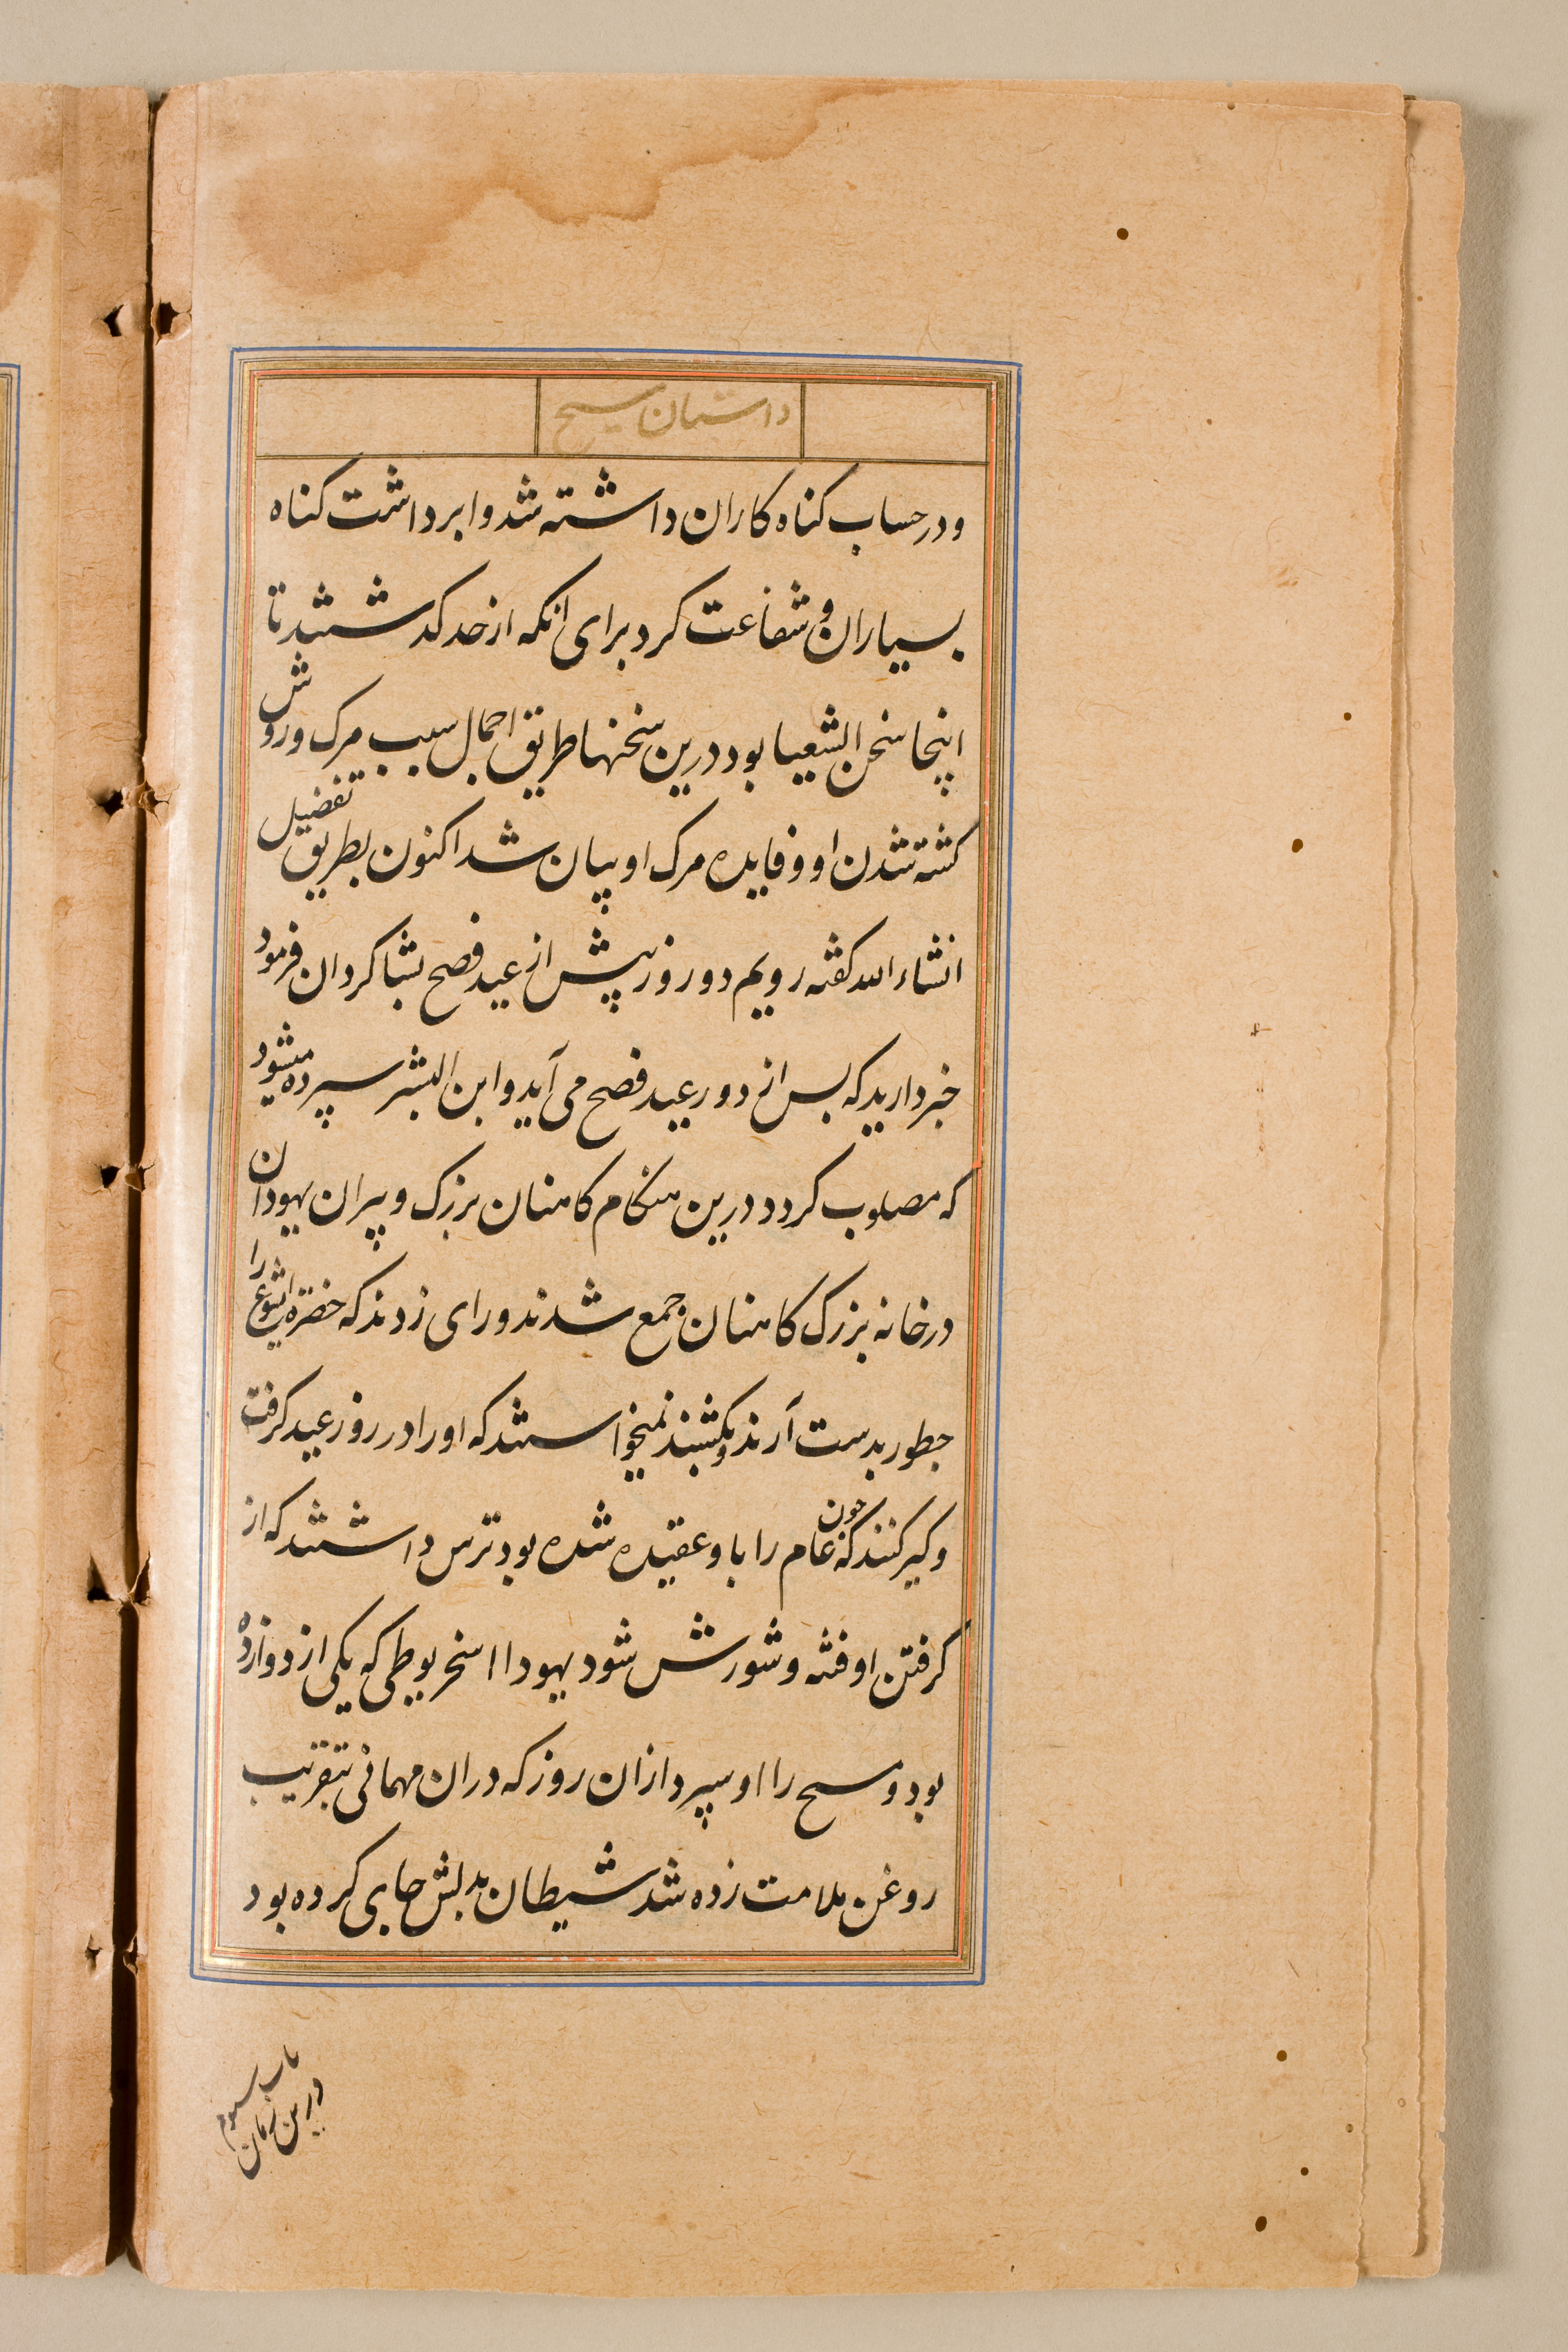 داستان مسیح
و در حساب کناه کاران داشته شد و ابرداشت کناه
بسیاران و شفاعت کرد برای انکه از حد کدشتند تا
اینجا سخن الشعیا بود درین سخنها طریق اجمال سبب مرک و روش
کشته شدن او و فایده مرک او بیان شد اکنون بطریق تفضیل
انشاء الله کفته رویم دو روز پیش از عید فصح بشاکردان فرمود
خبر دارید که بس از دو رعید فصح می آید و ابن البشر سپرده میشود
که مصلوب کردد درین هنکام کاهنان بزرک و پیران یهودان
در خانه بزرک کاهنان جمع شدند و رای زدند که حضرة ایشوع را
جطور بدست آرند و بکشند نمیخواستند که او را در روز عید کرفت
و کیر کنند که جون عام را باو عقیده شده بود ترس داشتند که از
کرفتن او فتنه و شورش شود یهودا اسخریوطی که یکی از دوازده
بود و مسیح را او سپرد ازان روز که دران مهمانی بتقریب
روغن ملامت زده شد شیطان بدلش جای کرده بود
باب سیوم
درین زمان